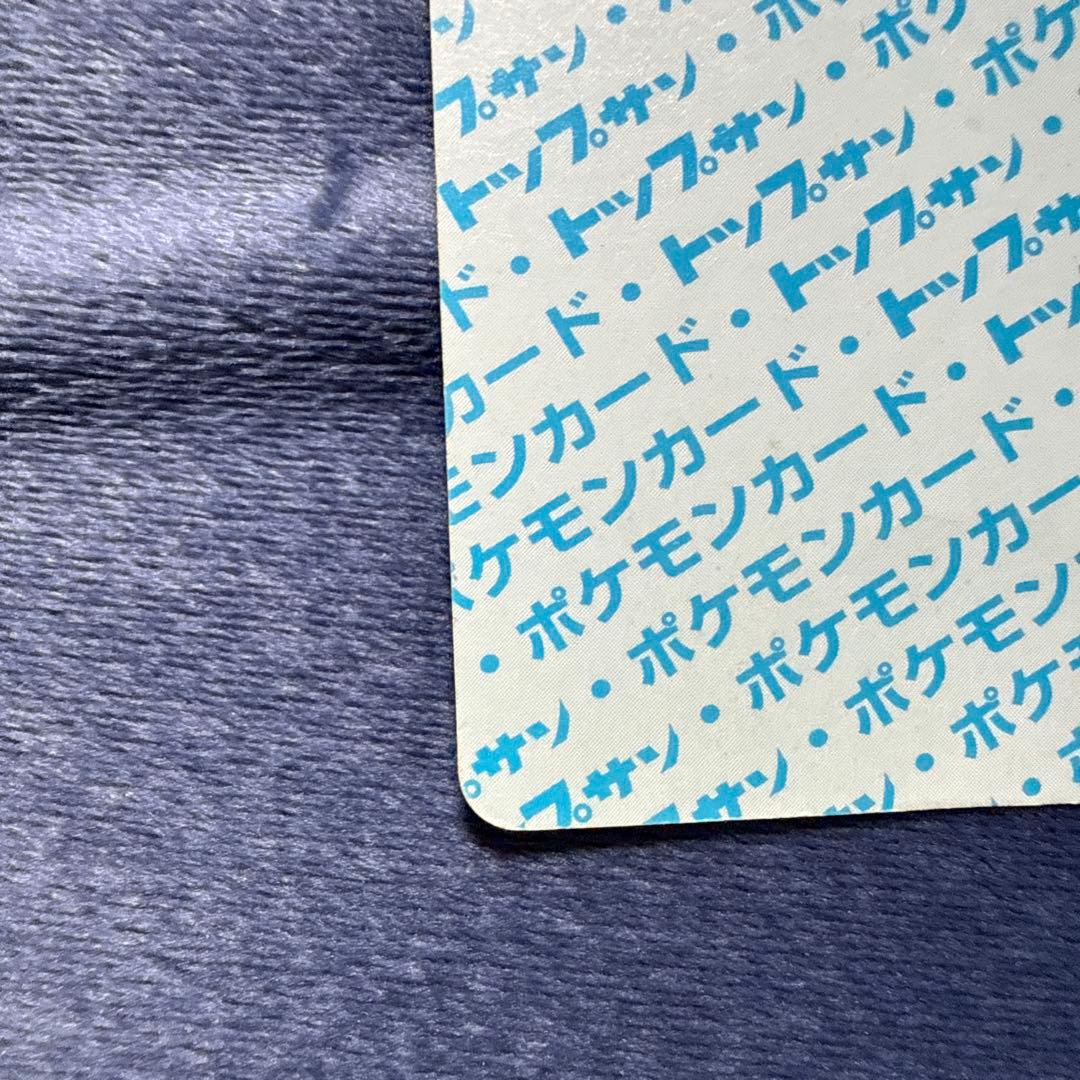 ン
プサン・
トップサン・ポ
ド・トップサン・ポケ
カード・トップサン・ポケ
モンカード・トップサン・
ケモンカード・トップサ
・ポケモンカード・トッ
プサン・ポケモンカード・
プサン・ポケモンカー
サン・ポケモン
ン・ポケ
・